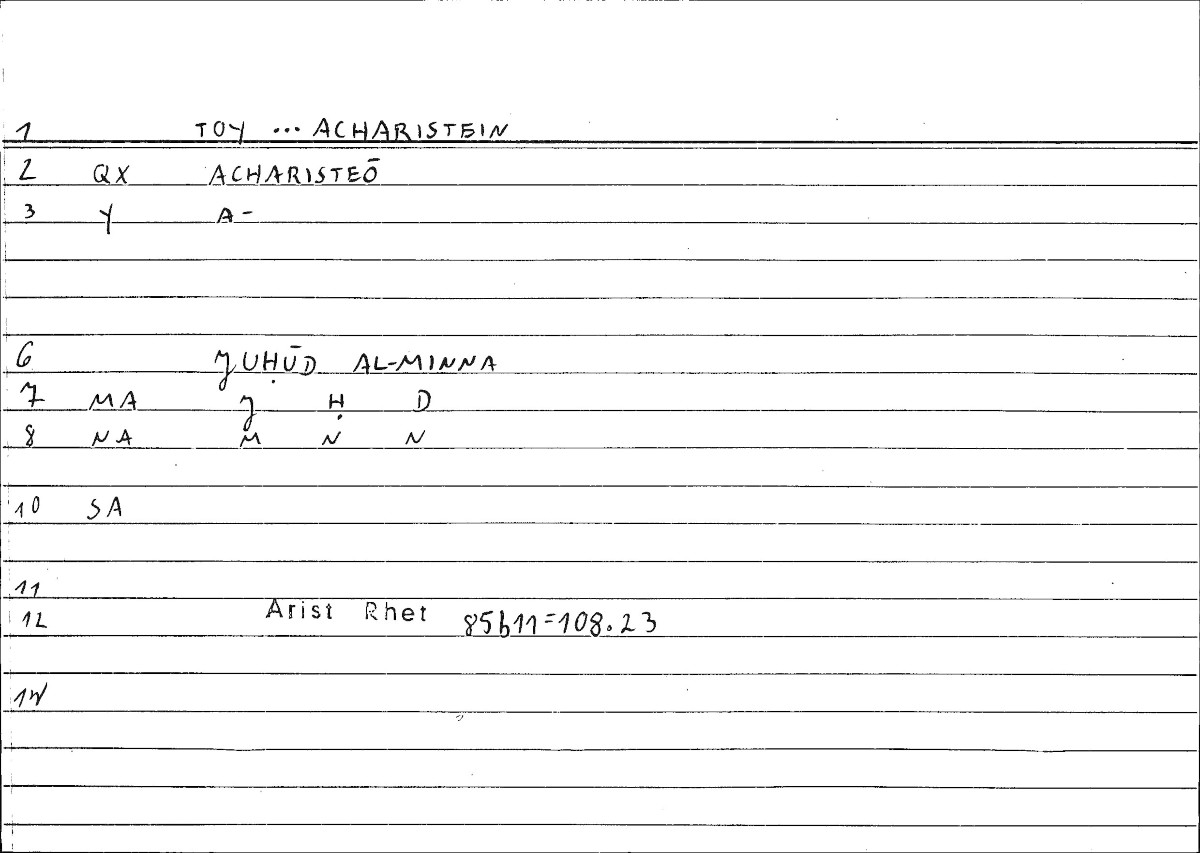 1 TOY ... ACHARISTEIN
2 QX ACHARISTEŌ
3 Y A-
6 JUḤŪD AL-MINNA
7 MA J Ḥ D
8 NA M N N
10 SA
11
12 Arist Rhet 85b11=108.23
14